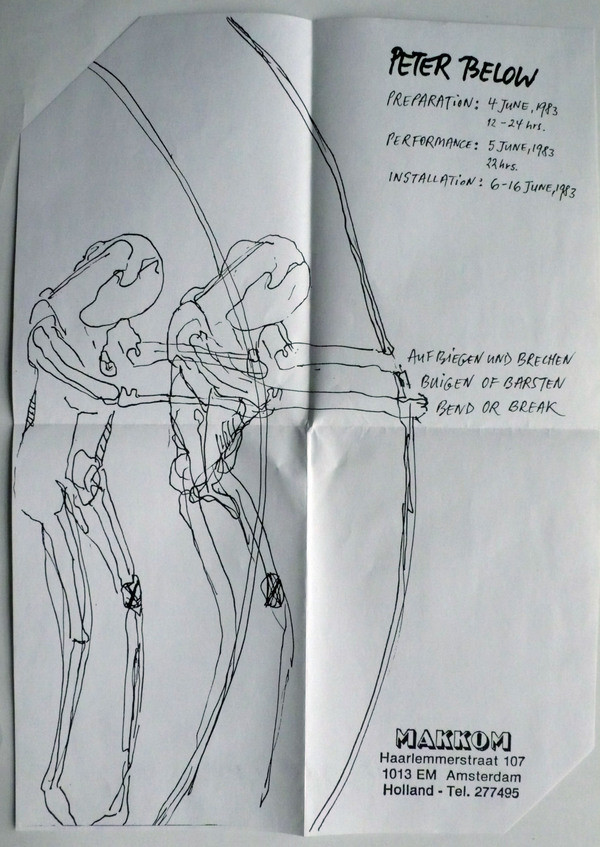 PETER BELOW
PREPARATION: 4 JUNE, 1983
12-24 hrs.
PERFORMANCE: 5 JUNE, 1983
22 hrs.
INSTALLATION: 6-16 JUNE, 1983
AUF BIEGEN UND BRECHEN
BUIGEN OF BARSTEN
BEND OR BREAK
MAKKOM
Haarlemmerstraat 107
1013 EM Amsterdam
Holland - Tel. 277495